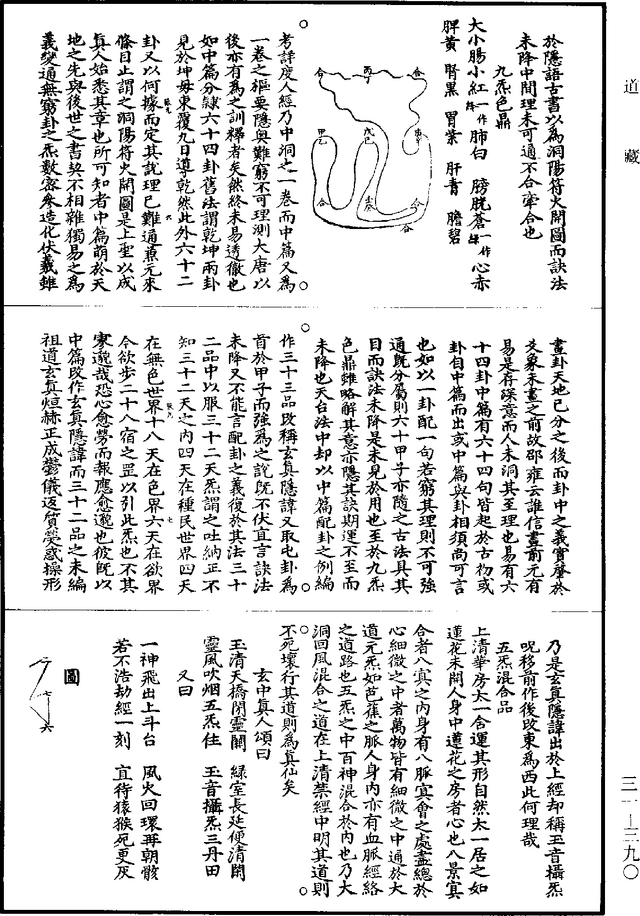 道藏
於隱語古書以為洞陽符火開圖而訣法
未降中間理未可通不合牽合也
九炁色鼎
大小腸小紅一作絳 肺白 膀胱蒼一作綠 心赤
脾黃 腎黑 胃紫 肝青 膽碧
合 丙丁 合
甲乙 戊己 庚辛
合 壬癸 合
合
考詳度人經乃中洞之一卷而中篇又為
一卷之樞要隱奧難窮不可理測大唐以
後亦有為之訓釋者矣然終未易透徹也
如中篇分隸六十四卦舊法謂乾坤兩卦
見於坤母東覆九日導乾然此外六十二
卦又以何據而定其說理已難通兼元來
條目止謂之洞陽符火開圖是上聖以成
真人始悉其章也所可知者中篇萌於天
地之先與後世之書契不相雜獨易之為
義變通無窮卦之炁數密參造化伏羲雖
畫卦天地已分之後而卦中之義實肇於
爻象未畫之前故邵雍云誰信畫前元有
易是存深意而人未洞其至理也易有六
十四卦中篇有六十四句皆起於古物或
卦自中篇而出或中篇與卦相須尚可言
也如以一卦配一句若窮其理則不可強
通既分屬則六十甲子亦隨之古法具其
目而訣法未降是未見於用也至於九炁
色鼎雖略解其意亦隱其訣期運不至而
未降也天台法中却以中篇配卦之例編
作三十三品改稱玄真隱諱又取屯卦為
首於甲子而強為之說既不伏宜言訣法
未降又不能言配卦之義復於其法三十
二品中以服三十二天炁謂之吐納正不
知三十二天之內四天在種民世界四天
在無色世界十八天在色界六天在欲界
今欲步二十八宿之罡以引此炁也不其
寥邈哉恐心愈勞而報應愈邈也彼既以
中篇改作玄真隱諱而三十二品之末編
祖道玄真烜赫正成鬱儀返質熒惑操形
乃是玄真隱諱出於上經却稱玉音攝炁
呪移前作後改東為西此何理哉
五炁混合品
上清華房大一合運其形自然太一居之如
蓮花未開人身中蓮花之房者心也八景冥
合者八寘之內身有八脈冥會之處盡總於
心細微之中者萬物皆有細微之中通於大
道元炁如芭蕉之脈人身內亦有血脈經絡
之道路也五炁之中百神混合於內也乃大
洞回風混合之道在上清禁經中明其道則
不死壞行其道則為真仙矣
玄中真人頌曰
玉清天橋閉靈關 綠室長延便清閑
靈風吹烟五炁住 玉音攝炁三丹田
又曰
一神飛出上斗台 風火回環再朝骸
若不浩劫經一刻 宜待猿猴死更灰
圖
三一—三九〇